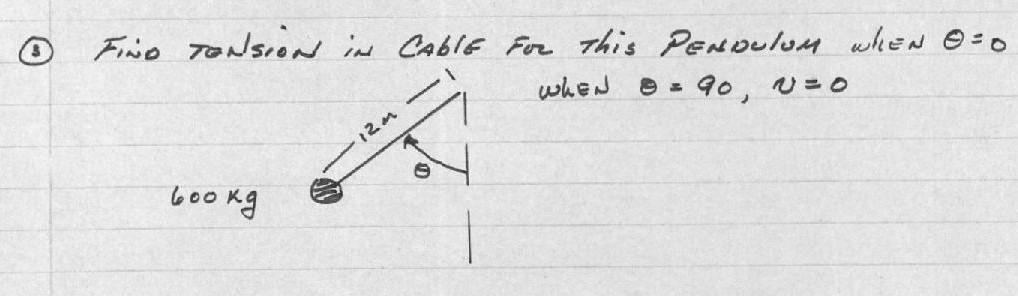 ③ FIND TENSION IN CABLE FOR THIS PENDULUM WHEN θ=0
WHEN θ = 90, v=0
12m
θ
600 Kg